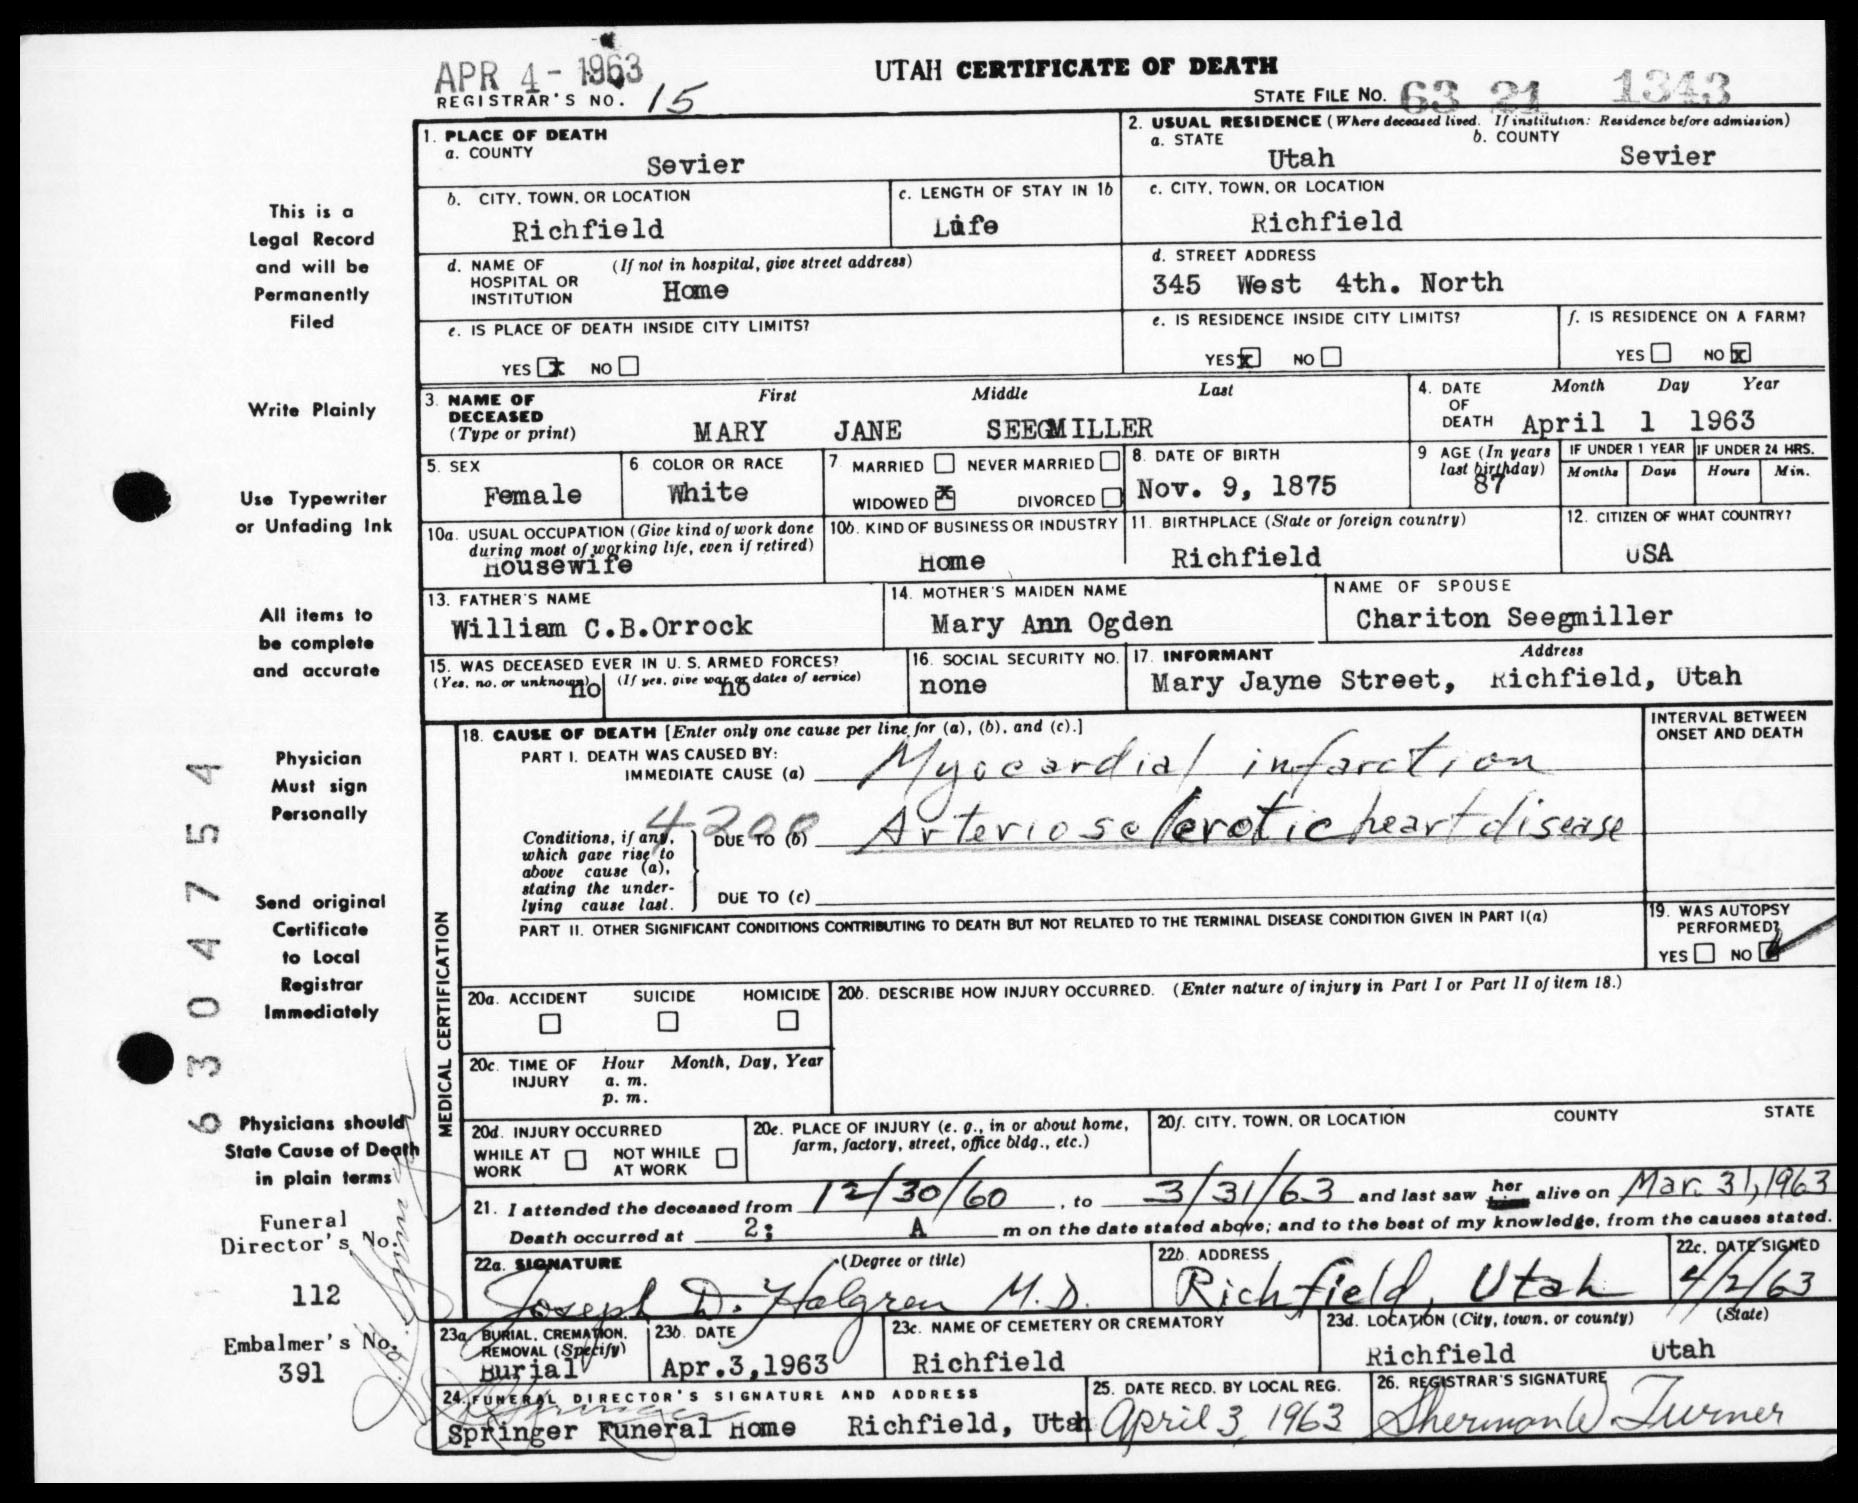 APR 4 - 1963
UTAH CERTIFICATE OF DEATH
REGISTRAR'S NO. 15
STATE FILE NO. 63 21 1343
This is a
Legal Record
and will be
Permanently
Filed
Write Plainly
Use Typewriter
or Unfading Ink
All items to
be complete
and accurate
Physician
Must sign
Personally
Send original
Certificate
to Local
Registrar
Immediately
Physicians should
State Cause of Death
in plain terms
Funeral
Director's No.
112
Embalmer's No.
391
6304754
1. PLACE OF DEATH
a. COUNTY
Sevier
2. USUAL RESIDENCE (Where deceased lived. If institution: Residence before admission)
a. STATE
Utah
b. COUNTY
Sevier
b. CITY, TOWN, OR LOCATION
Richfield
c. LENGTH OF STAY IN 1b
Life
c. CITY, TOWN, OR LOCATION
Richfield
d. NAME OF HOSPITAL OR INSTITUTION
(If not in hospital, give street address)
Home
d. STREET ADDRESS
345 West 4th. North
e. IS PLACE OF DEATH INSIDE CITY LIMITS?
YES x NO
e. IS RESIDENCE INSIDE CITY LIMITS?
YES x NO
f. IS RESIDENCE ON A FARM?
YES NO x
3. NAME OF DECEASED
(Type or print)
First Middle Last
MARY JANE SEEGMILLER
4. DATE OF DEATH
Month Day Year
April 1 1963
5. SEX
Female
6 COLOR OR RACE
White
7 MARRIED NEVER MARRIED
WIDOWED x DIVORCED
8. DATE OF BIRTH
Nov. 9, 1875
9 AGE (In years last birthday)
87
IF UNDER 1 YEAR
Months Days
IF UNDER 24 HRS.
Hours Min.
10a. USUAL OCCUPATION (Give kind of work done during most of working life, even if retired)
Housewife
10b. KIND OF BUSINESS OR INDUSTRY
Home
11. BIRTHPLACE (State or foreign country)
Richfield
12. CITIZEN OF WHAT COUNTRY?
USA
13. FATHER'S NAME
William C.B.Orrock
14. MOTHER'S MAIDEN NAME
Mary Ann Ogden
NAME OF SPOUSE
Chariton Seegmiller
15. WAS DECEASED EVER IN U. S. ARMED FORCES?
(Yes, no, or unknown) no
(If yes, give war or dates of service) no
16. SOCIAL SECURITY NO.
none
17. INFORMANT Address
Mary Jayne Street, Richfield, Utah
MEDICAL CERTIFICATION
18. CAUSE OF DEATH [Enter only one cause per line for (a), (b), and (c).]
INTERVAL BETWEEN ONSET AND DEATH
PART I. DEATH WAS CAUSED BY:
IMMEDIATE CAUSE (a) Myocardial infarction
4200
Conditions, if any, which gave rise to above cause (a), stating the underlying cause last.
DUE TO (b) Arteriosclerotic heart disease
DUE TO (c)
PART II. OTHER SIGNIFICANT CONDITIONS CONTRIBUTING TO DEATH BUT NOT RELATED TO THE TERMINAL DISEASE CONDITION GIVEN IN PART I(a)
19. WAS AUTOPSY PERFORMED?
YES NO
20a. ACCIDENT SUICIDE HOMICIDE
20b. DESCRIBE HOW INJURY OCCURRED. (Enter nature of injury in Part I or Part II of item 18.)
20c. TIME OF INJURY
Hour Month, Day, Year
a. m.
p. m.
20d. INJURY OCCURRED
WHILE AT WORK NOT WHILE AT WORK
20e. PLACE OF INJURY (e. g., in or about home, farm, factory, street, office bldg., etc.)
20f. CITY, TOWN, OR LOCATION COUNTY STATE
21. I attended the deceased from 12/30/60, to 3/31/63 and last saw her alive on Mar. 31, 1963
Death occurred at 2: A m on the date stated above; and to the best of my knowledge, from the causes stated.
22a. SIGNATURE (Degree or title)
Joseph D. Halgren M.D.
22b. ADDRESS
Richfield, Utah
22c. DATE SIGNED
4/2/63
23a. BURIAL, CREMATION, REMOVAL (Specify)
Burial
23b. DATE
Apr.3,1963
23c. NAME OF CEMETERY OR CREMATORY
Richfield
23d. LOCATION (City, town, or county) (State)
Richfield Utah
24. FUNERAL DIRECTOR'S SIGNATURE AND ADDRESS
Springer Funeral Home Richfield, Utah
25. DATE RECD. BY LOCAL REG.
April 3, 1963
26. REGISTRAR'S SIGNATURE
Sherman W. Turner